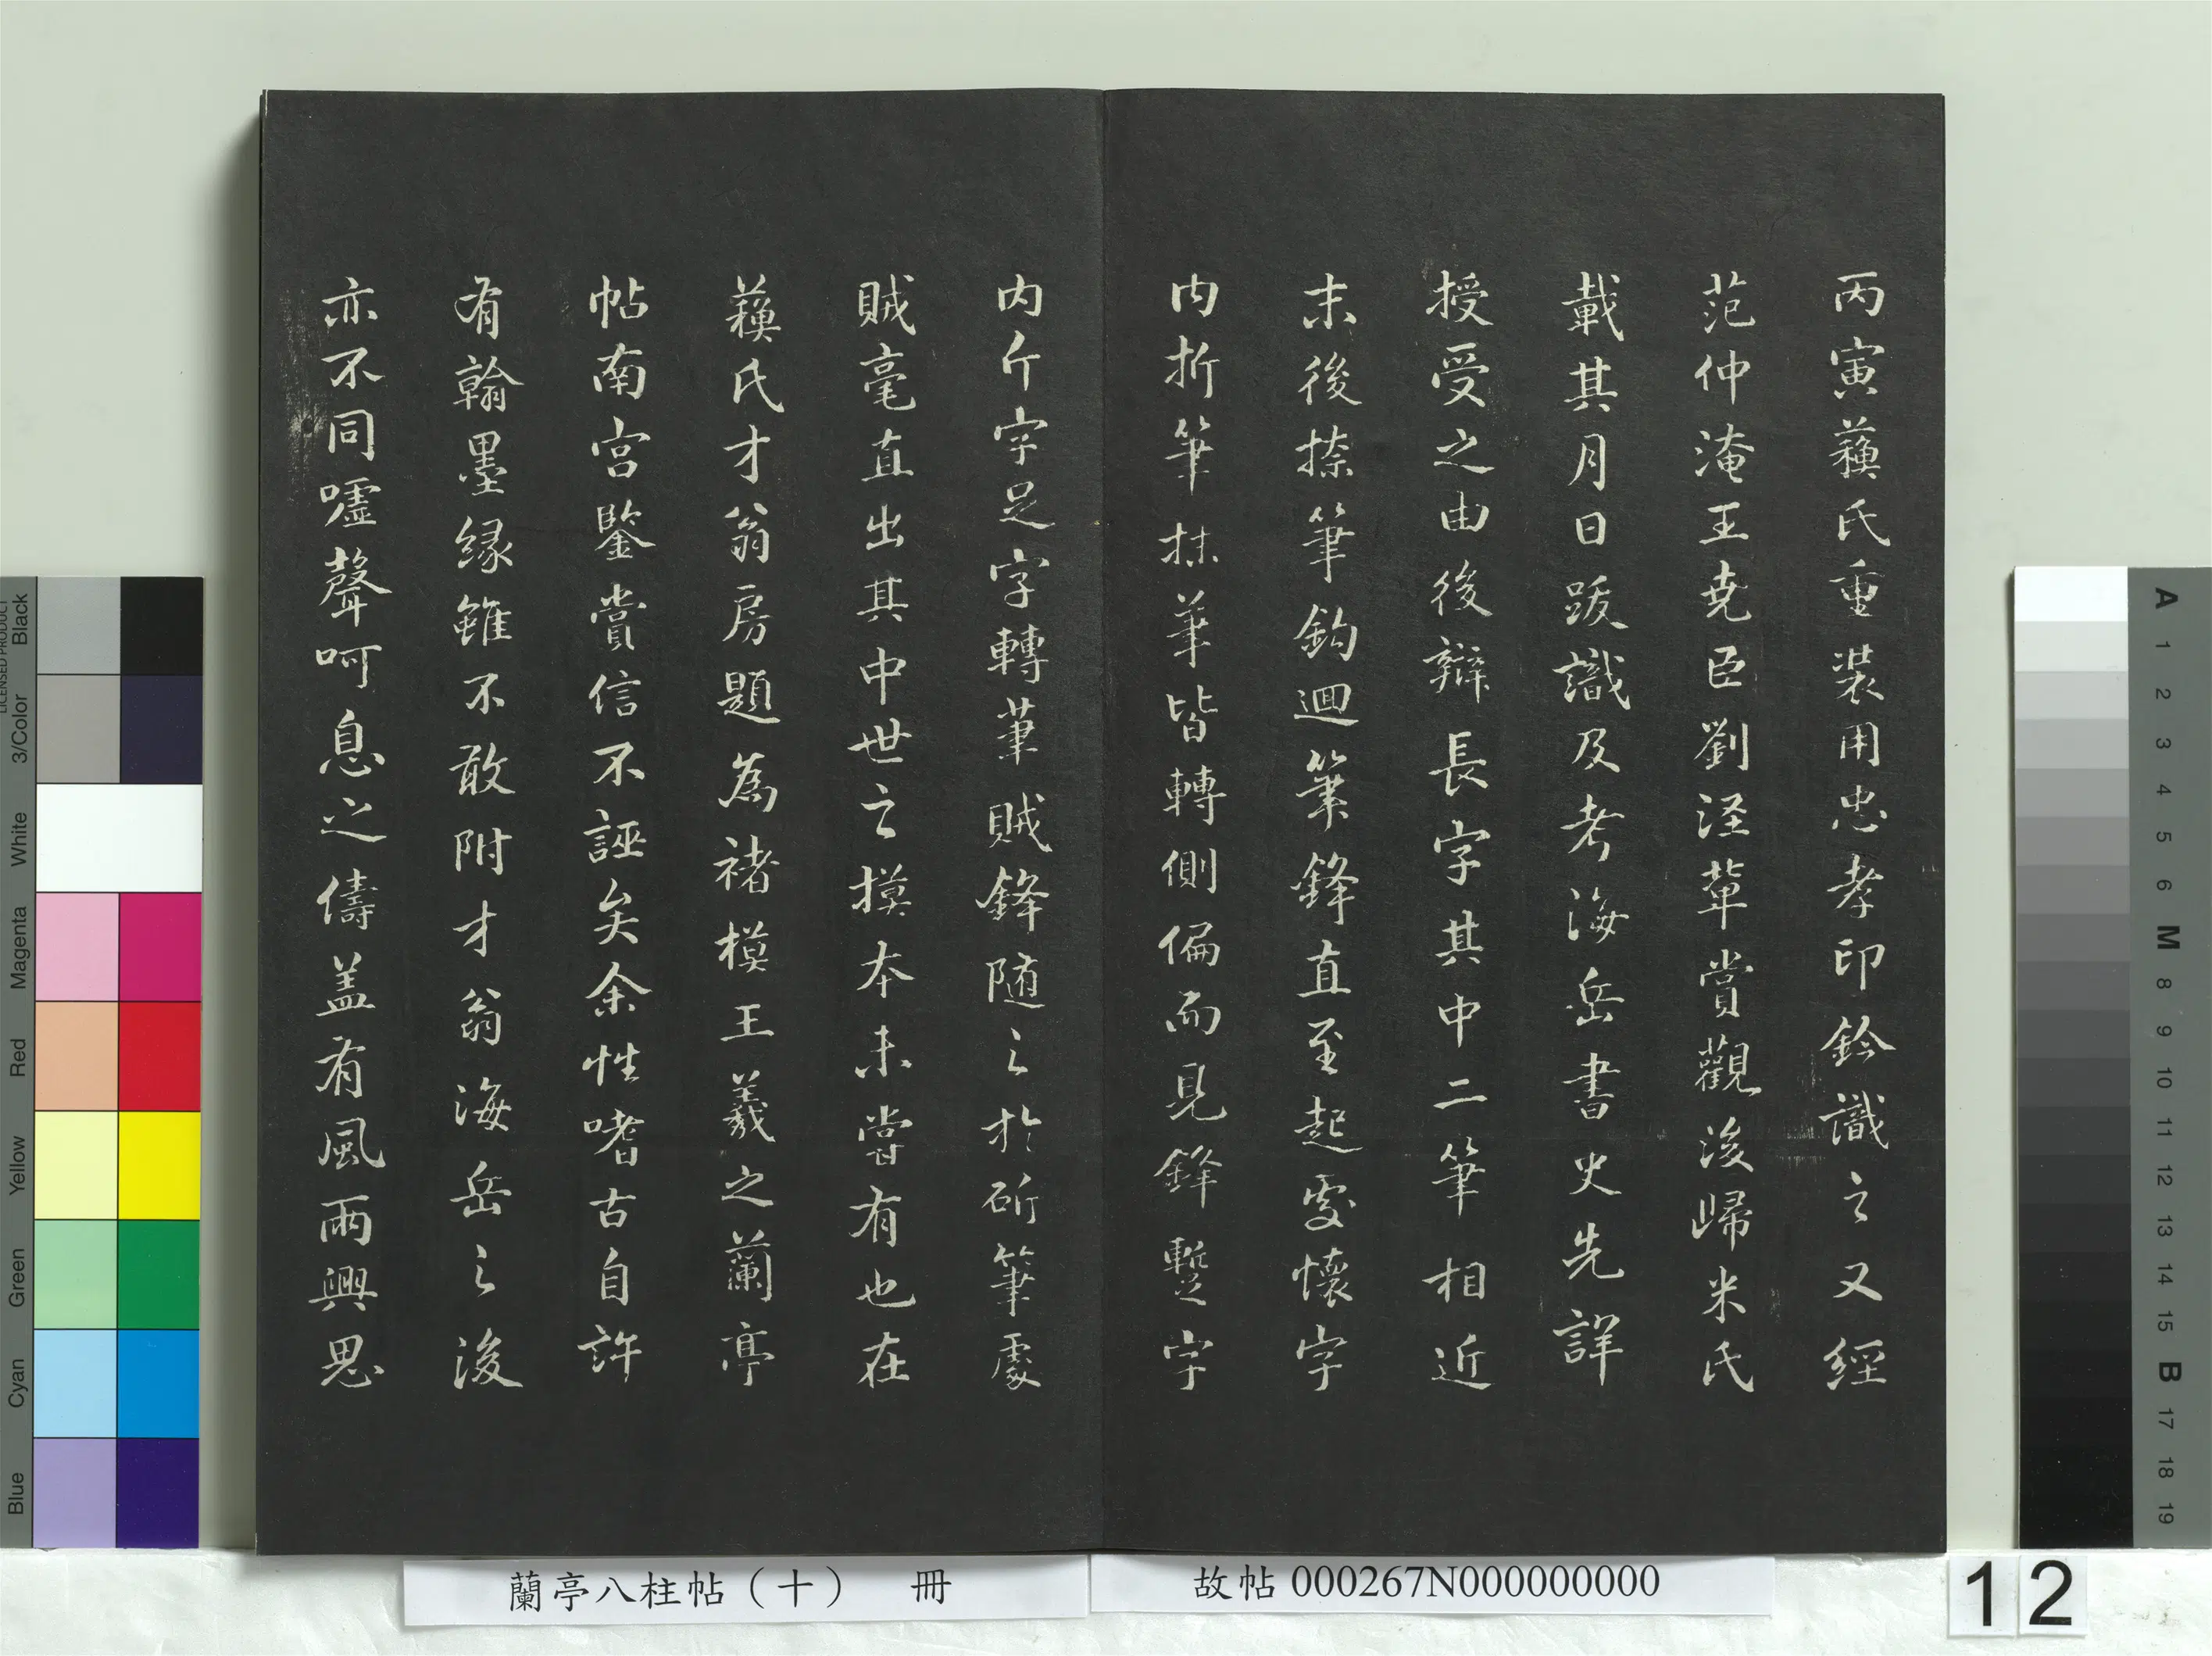 丙寅蘓氏重裝用忠孝印鈐識之又經
范仲淹王尭臣劉涇軰賞觀後歸米氏
載其月日跋識及考海岳書史先詳
授受之由後辯長字其中二筆相近
末後捺筆鈎迴筆鋒直至起處懷字
内折筆抹筆皆轉側偏而見鋒蹔字
内斤字足字轉筆賊鋒随之於斫筆處
賊毫直出其中世之摸本未嘗有也在
蘓氏才翁房題為禇模王羲之蘭亭
帖南宫鑒賞信不誣矣余性嗜古自許
有翰墨縁雖不敢附才翁海岳之後
亦不同嘘聲呵息之儔盖有風雨興思
蘭亭八柱帖（十） 冊
故帖 000267N000000000
12
Black
3/Color
White
Magenta
Red
Yellow
Green
Cyan
Blue
LICENSED PRODUCT
A
1
2
3
4
5
6
M
8
9
10
11
12
13
14
15
B
17
18
19